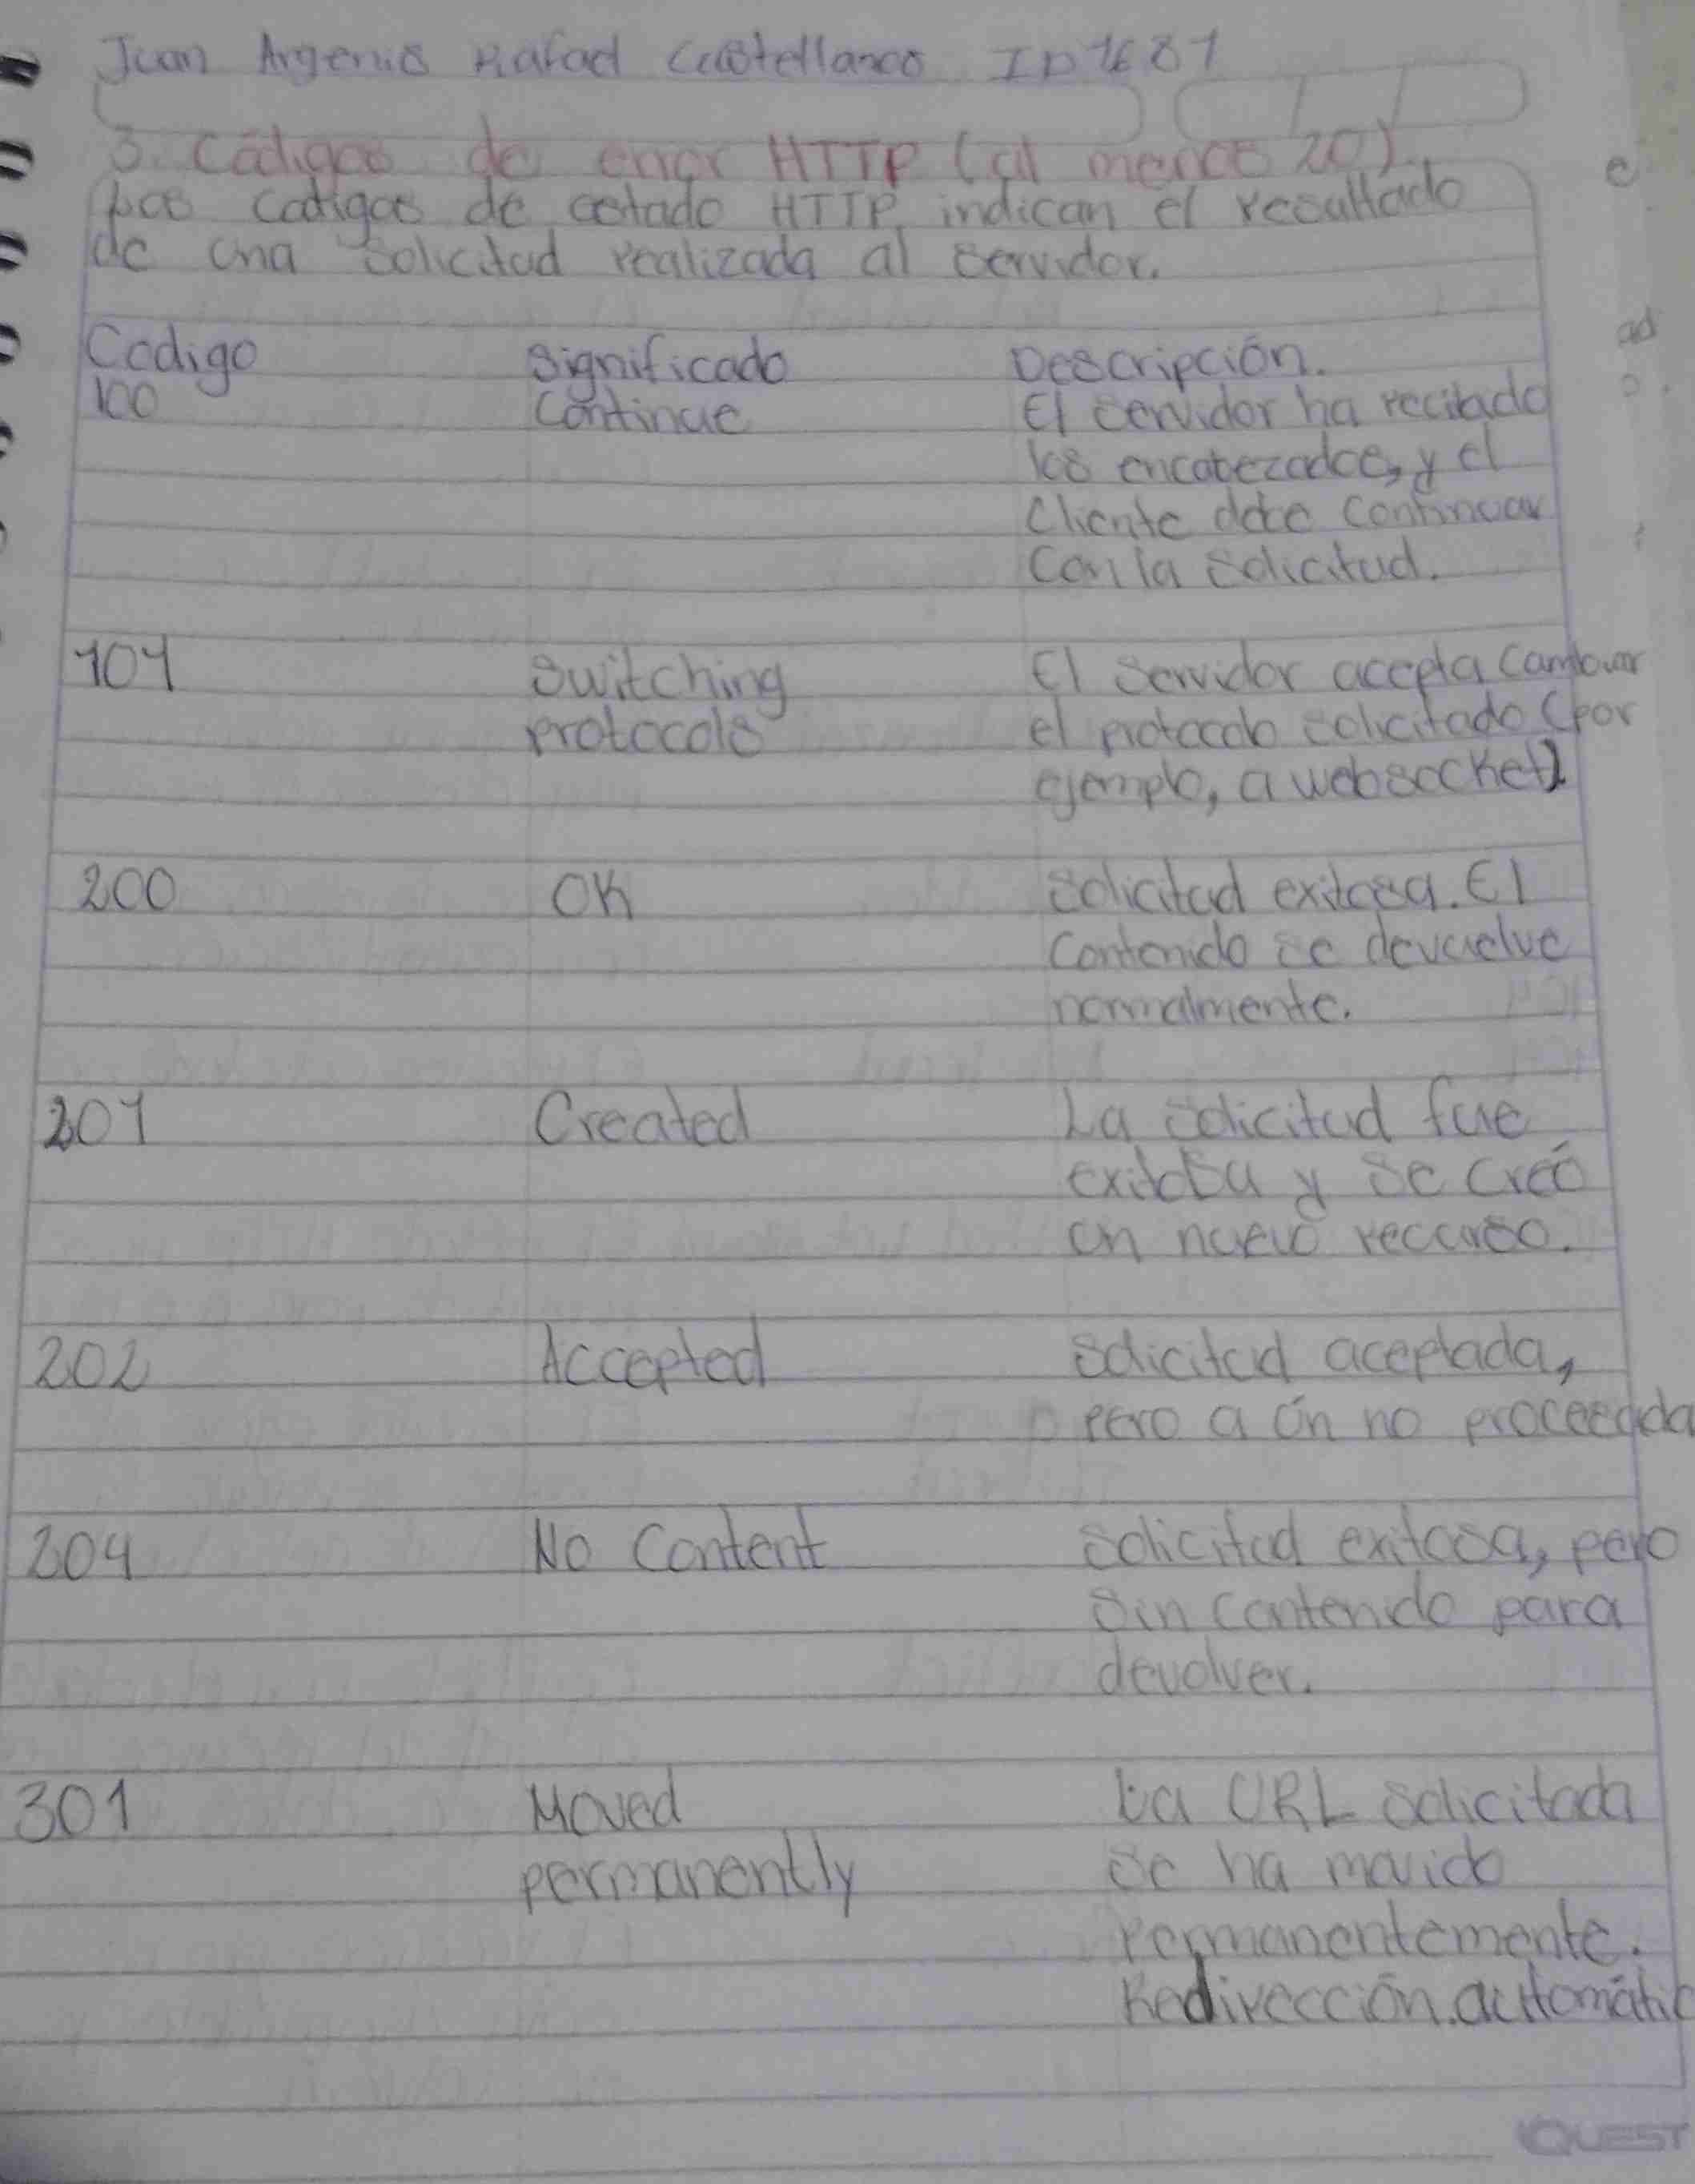 Juan Argenis Rafael Castellanos ID 1681
3. Códigos de error HTTP (al menos 20).
Los codigos de estado HTTP indican el resultado
de una solicitud realizada al servidor.
Codigo Significado Descripción.
100 Continue El servidor ha recibido
los encabezados, y el
cliente debe continuar
con la solicitud.
101 Switching El servidor acepta cambiar
protocols el protocolo solicitado (por
ejemplo, a websocket)
200 OK Solicitud exitosa. El
contenido se devuelve
normalmente.
201 Created La solicitud fue
exitosa y se creó
un nuevo recurso.
202 Accepted Solicitud aceptada,
pero a ún no procesada
204 No Content Solicitud exitosa, pero
sin contenido para
devolver.
301 Moved La URL solicitada
permanently se ha movido
permanentemente.
Redirección.automátic
QUEST